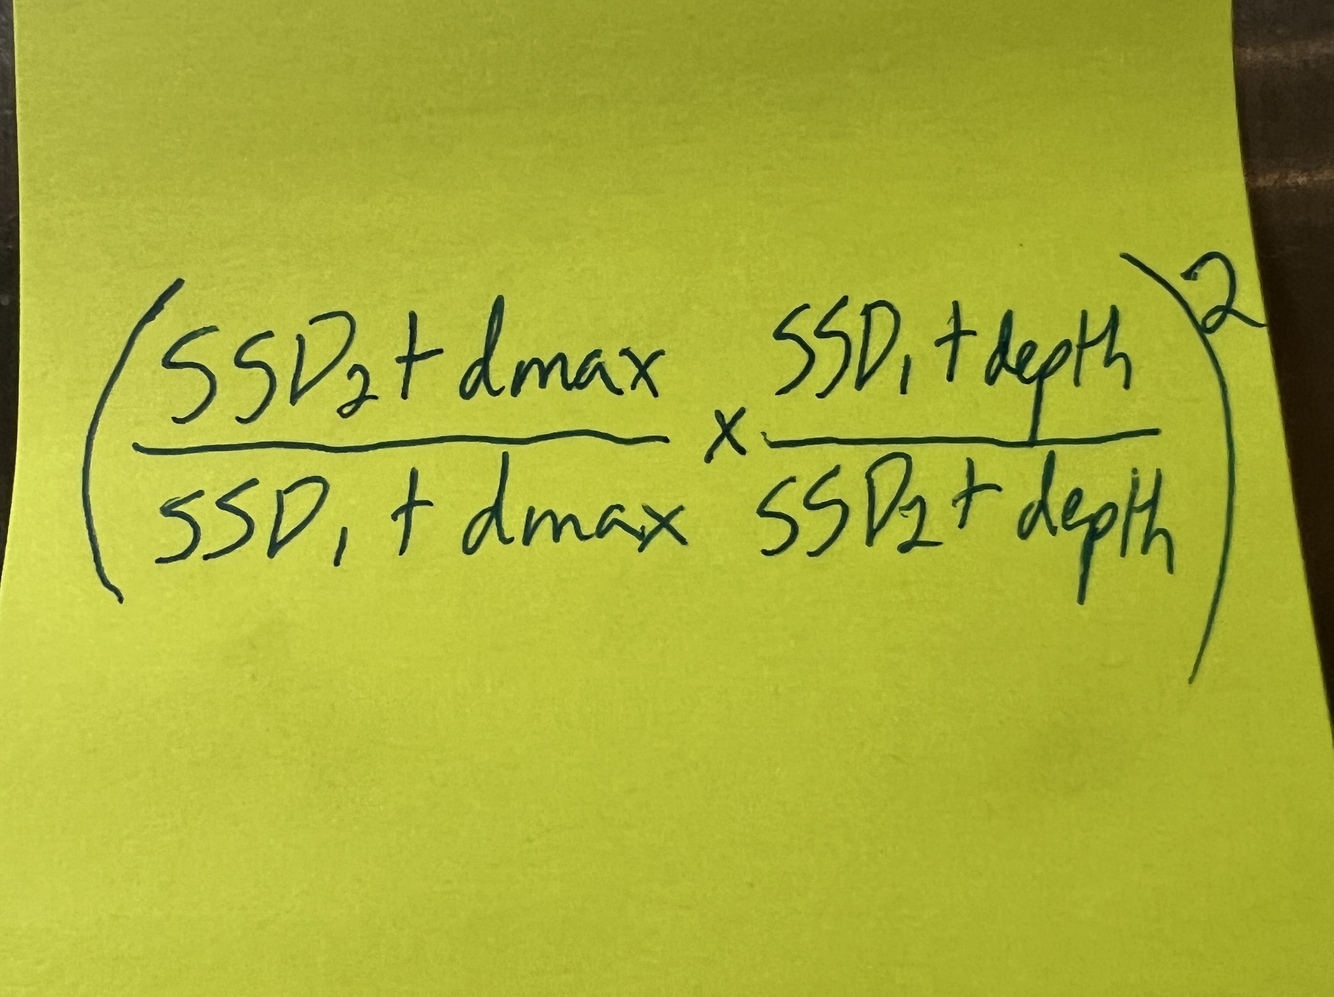 (SSD₂ + dmax / SSD₁ + dmax × SSD₁ + depth / SSD₂ + depth)²